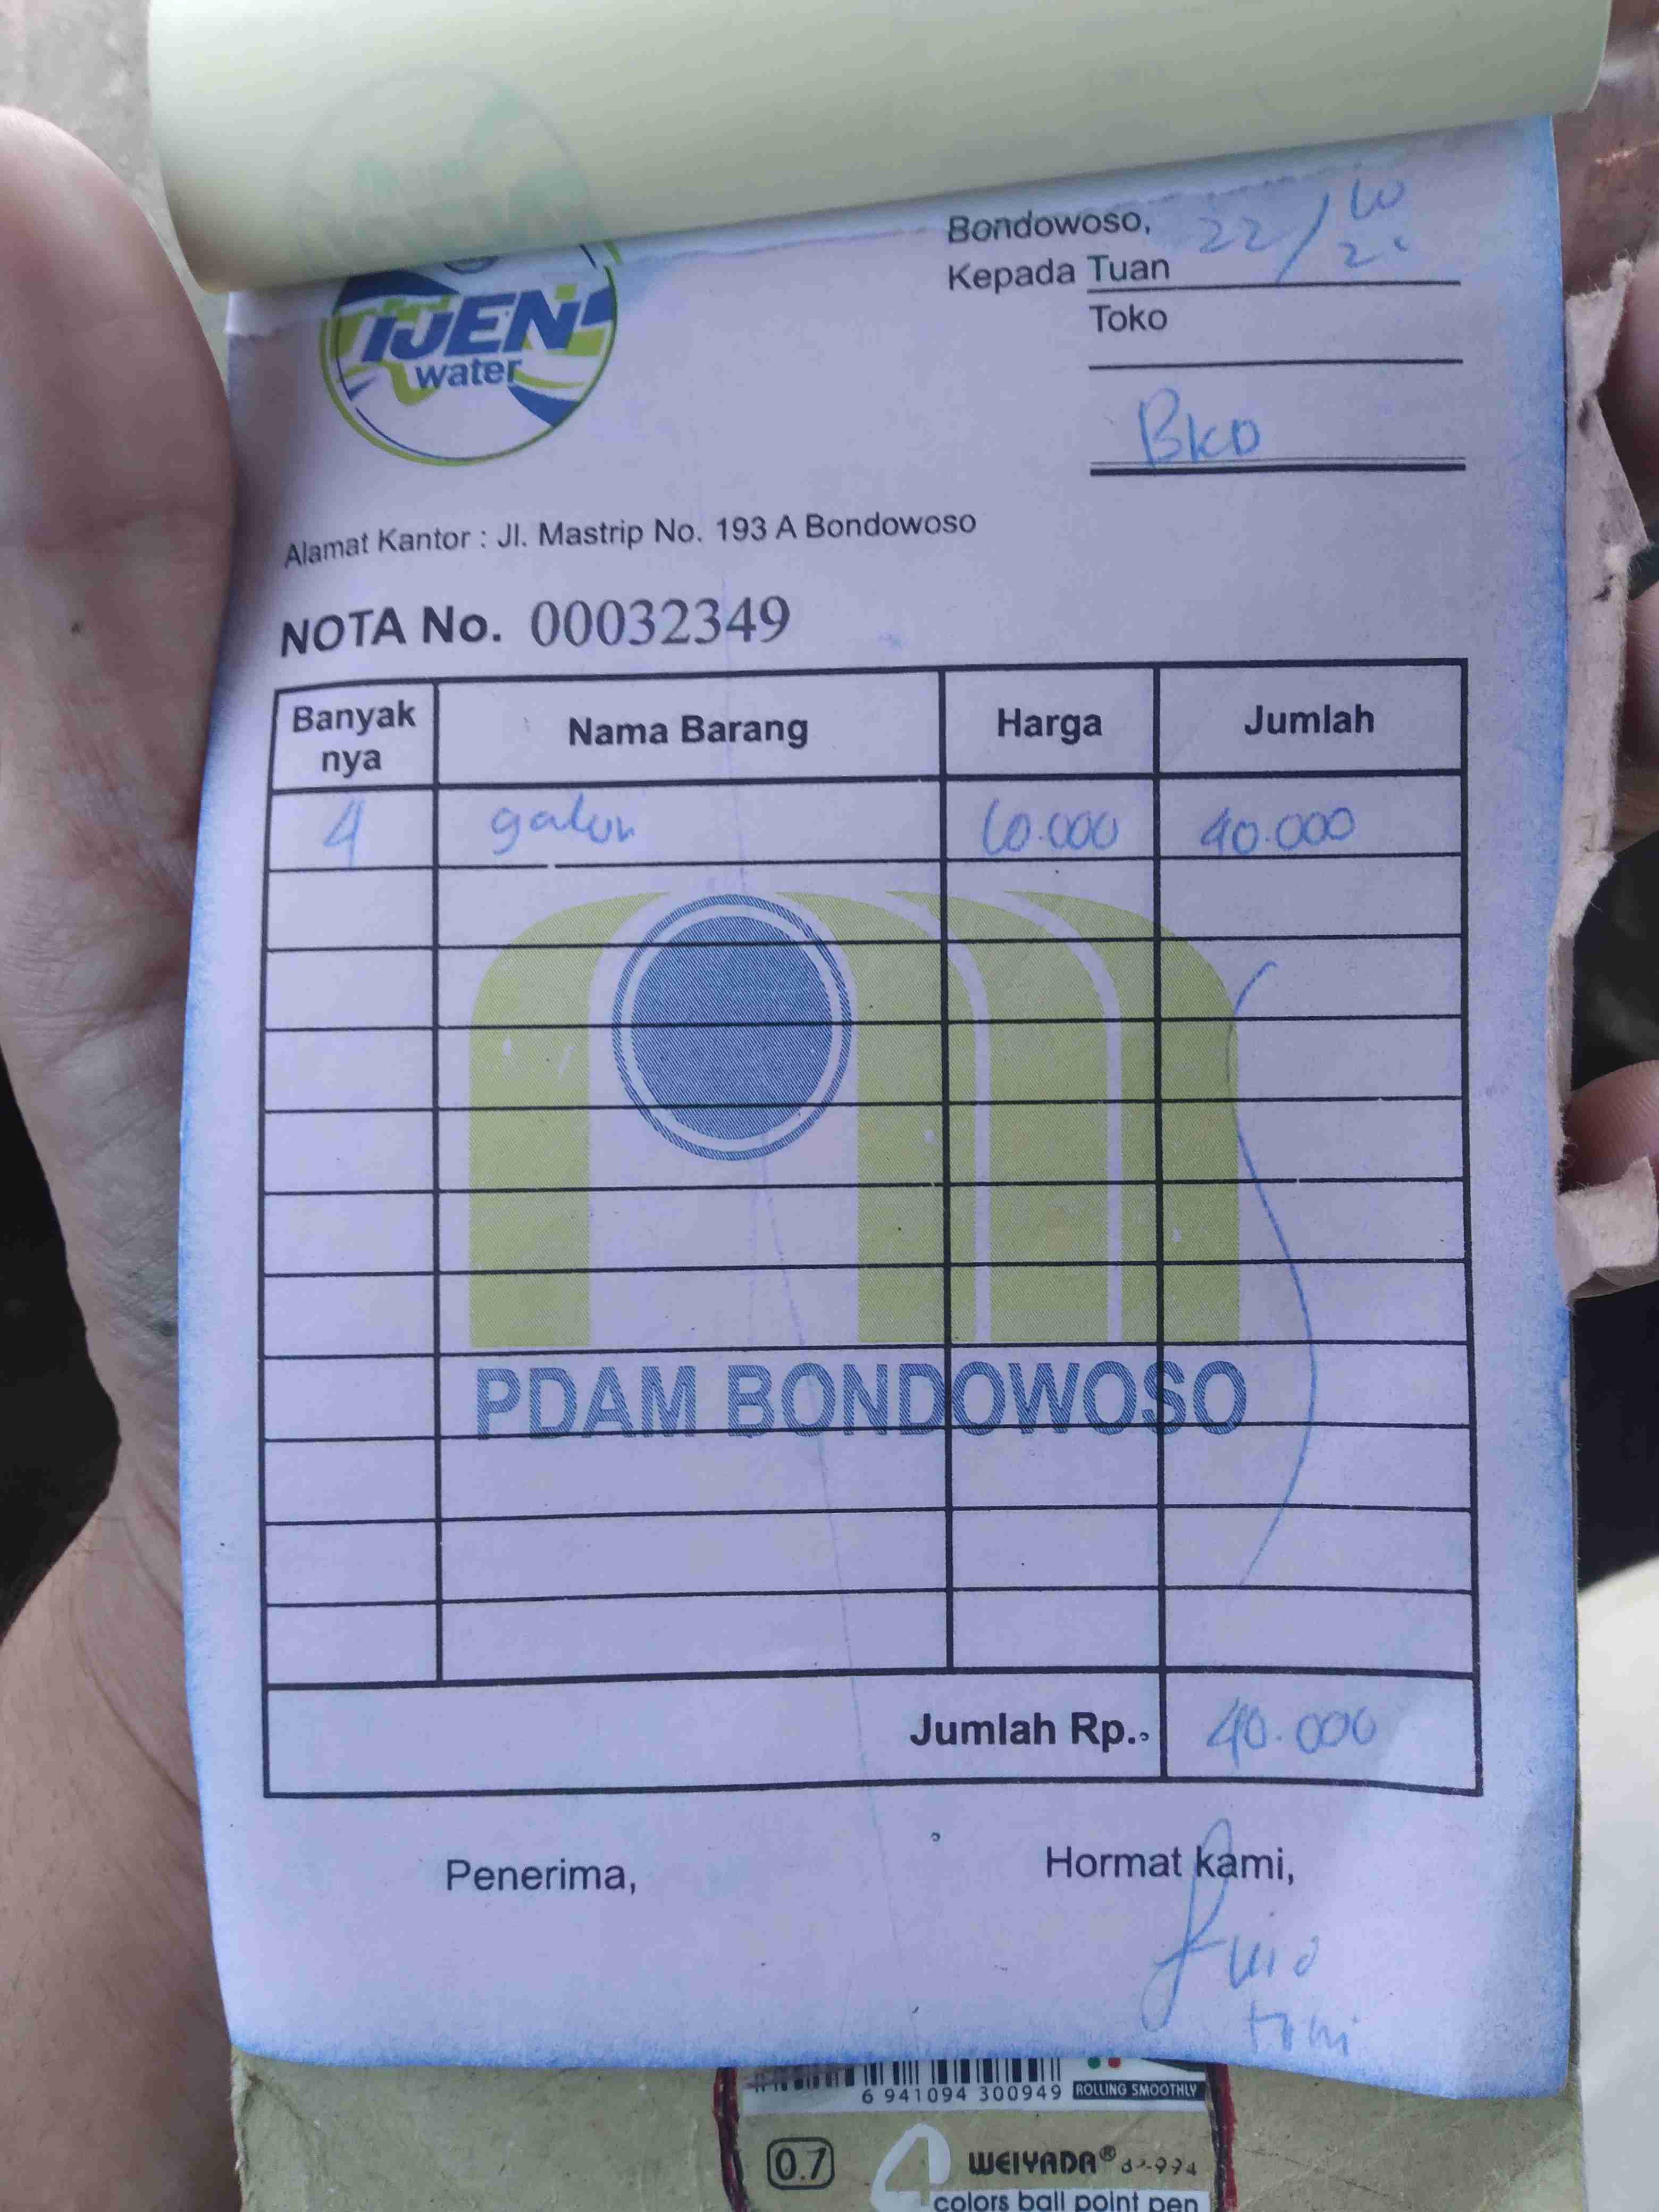 IJEN
water
Bondowoso, 22/10
Kepada Tuan
Toko
BKD
Alamat Kantor : Jl. Mastrip No. 193 A Bondowoso
NOTA No. 00032349
Banyak nya Nama Barang Harga Jumlah
4 galon 10.000 40.000
PDAM BONDOWOSO
Jumlah Rp. 40.000
Penerima, Hormat kami,
6 941094 300949 ROLLING SMOOTHLY
0.7 WEIYADA®
colors ball point pen